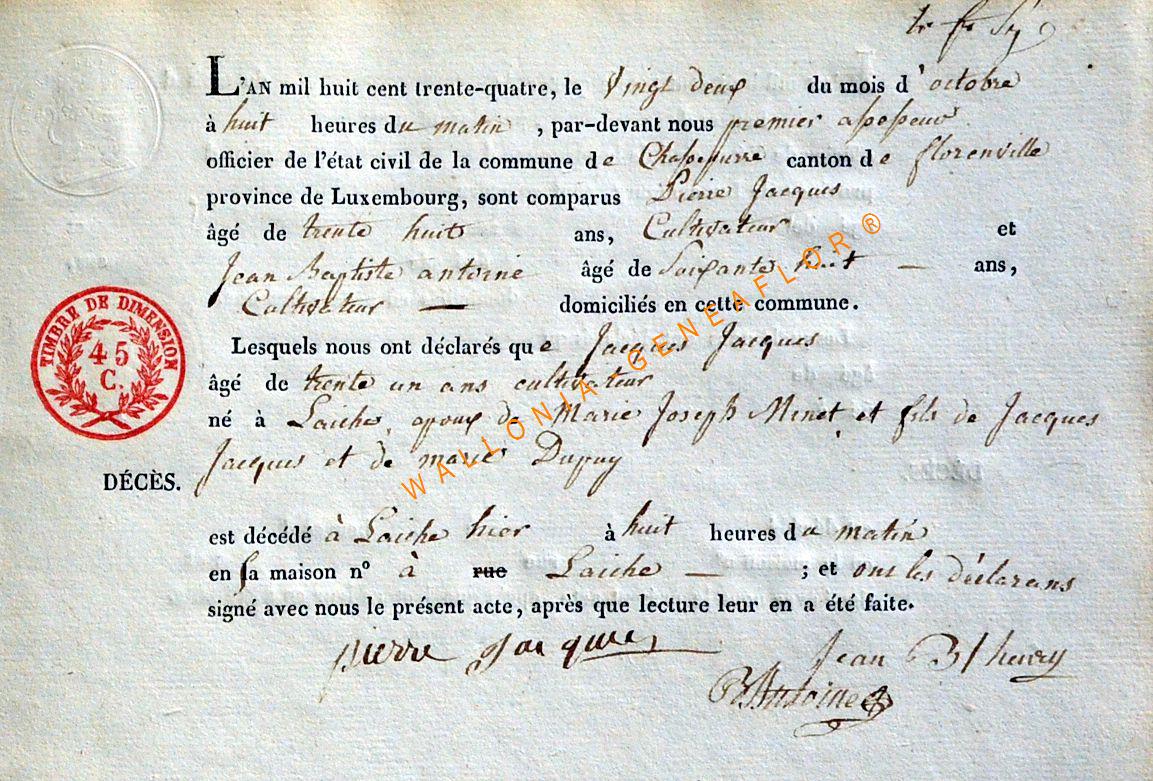 L'AN mil huit cent trente-quatre, le Vingt deux du mois d'octobre
à huit heures du matin, par-devant nous premier assesseur
officier de l'état civil de la commune de Chassepierre canton de florenville
province de Luxembourg, sont comparus Pierre Jacques
âgé de trente huit ans, Cultivateur et
Jean Baptiste antoine âgé de Soixante huit — ans,
Cultivateur — domiciliés en cette commune.
Lesquels nous ont déclarés que Jacques Jacques
âgé de trente un ans cultivateur
né à Laiche, epoux de Marie Joseph Minet et fils de Jacques
Jacques et de marie Dupuy
DÉCÈS.
est décédé à Laiche hier à huit heures du matin
en sa maison n° à rue Laiche — ; et ont les déclarans
signé avec nous le présent acte, après que lecture leur en a été faite.
pierre Jacques
Jean Bt henry
Bt Antoine
TIMBRE DE DIMENSION
45
C.
WALLONIA-GENEAFLOR ®